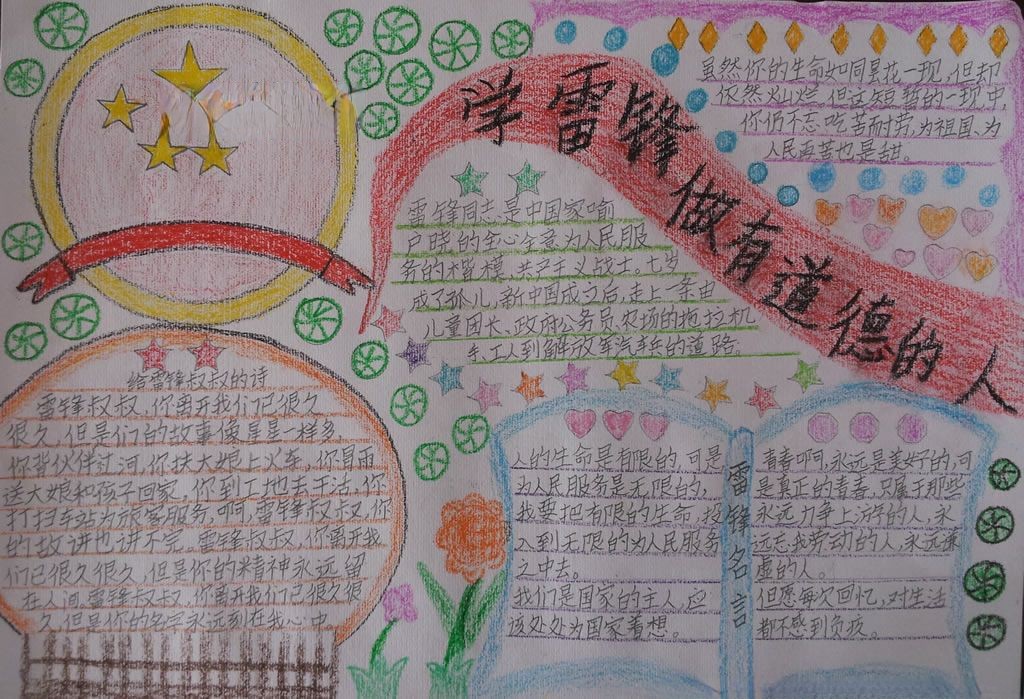 学雷锋做有道德的人
虽然你的生命如同昙花一现,但却
依然灿烂。但这短暂的一现中,
你仍不忘吃苦而耐劳,为祖国、为
人民再苦也是甜。
雷锋同志,是中国家喻
户晓的全心全意为人民服
务的楷模,共产主义战士。七岁
成了孤儿,新中国成立后,走上一条由
儿童团长、政府公务员、农场的拖拉机
手、工人到解放军汽车兵的道路。
给雷锋叔叔的诗
雷锋叔叔,你离开我们已很久
很久,但是们的故事像星星一样多。
你背伙伴过河,你扶大娘上火车,你冒雨
送大娘和孩子回家,你到工地去干活,你
打扫车站为旅客服务,啊,雷锋叔叔,你
的故讲也讲不完。雷锋叔叔,你离开我
们已很久很久,但是你的精神永远留
在人间。雷锋叔叔,你离开我们已很久很
久,但是你的名字永远刻在我心中
人的生命是有限的,可是
为人民服务是无限的,
我要把有限的生命,投
入到无限的为人民服务
之中去。
我们是国家的主人,应
该处处为国家着想。
雷锋名言
青春啊,永远是美好的,可
是真正的青春,只属于那些
永远力争上游的人,永
远忘我劳动的人,永远谦
虚的人。
但愿每次回忆,对生活
都不感到负疚。